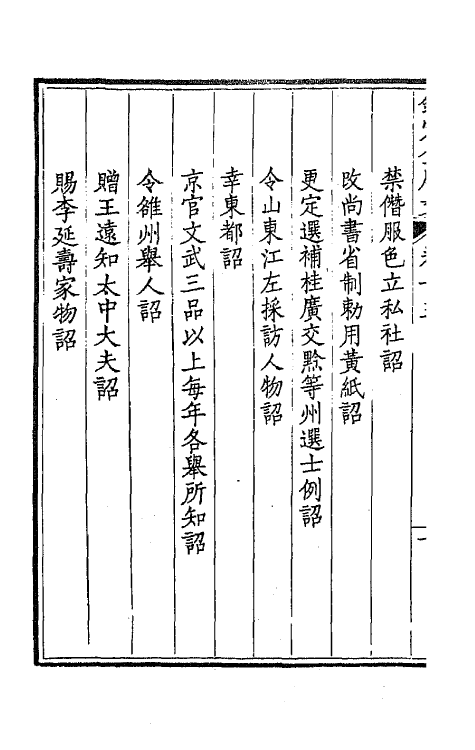 禁僭服色立私社詔
改尚書省制勅用黃紙詔
更定選補桂廣交黔等州選士例詔
令山東江左採訪人物詔
幸東都詔
京官文武三品以上每年各舉所知詔
令雒州舉人詔
贈王遠知太中大夫詔
賜李延壽家物詔